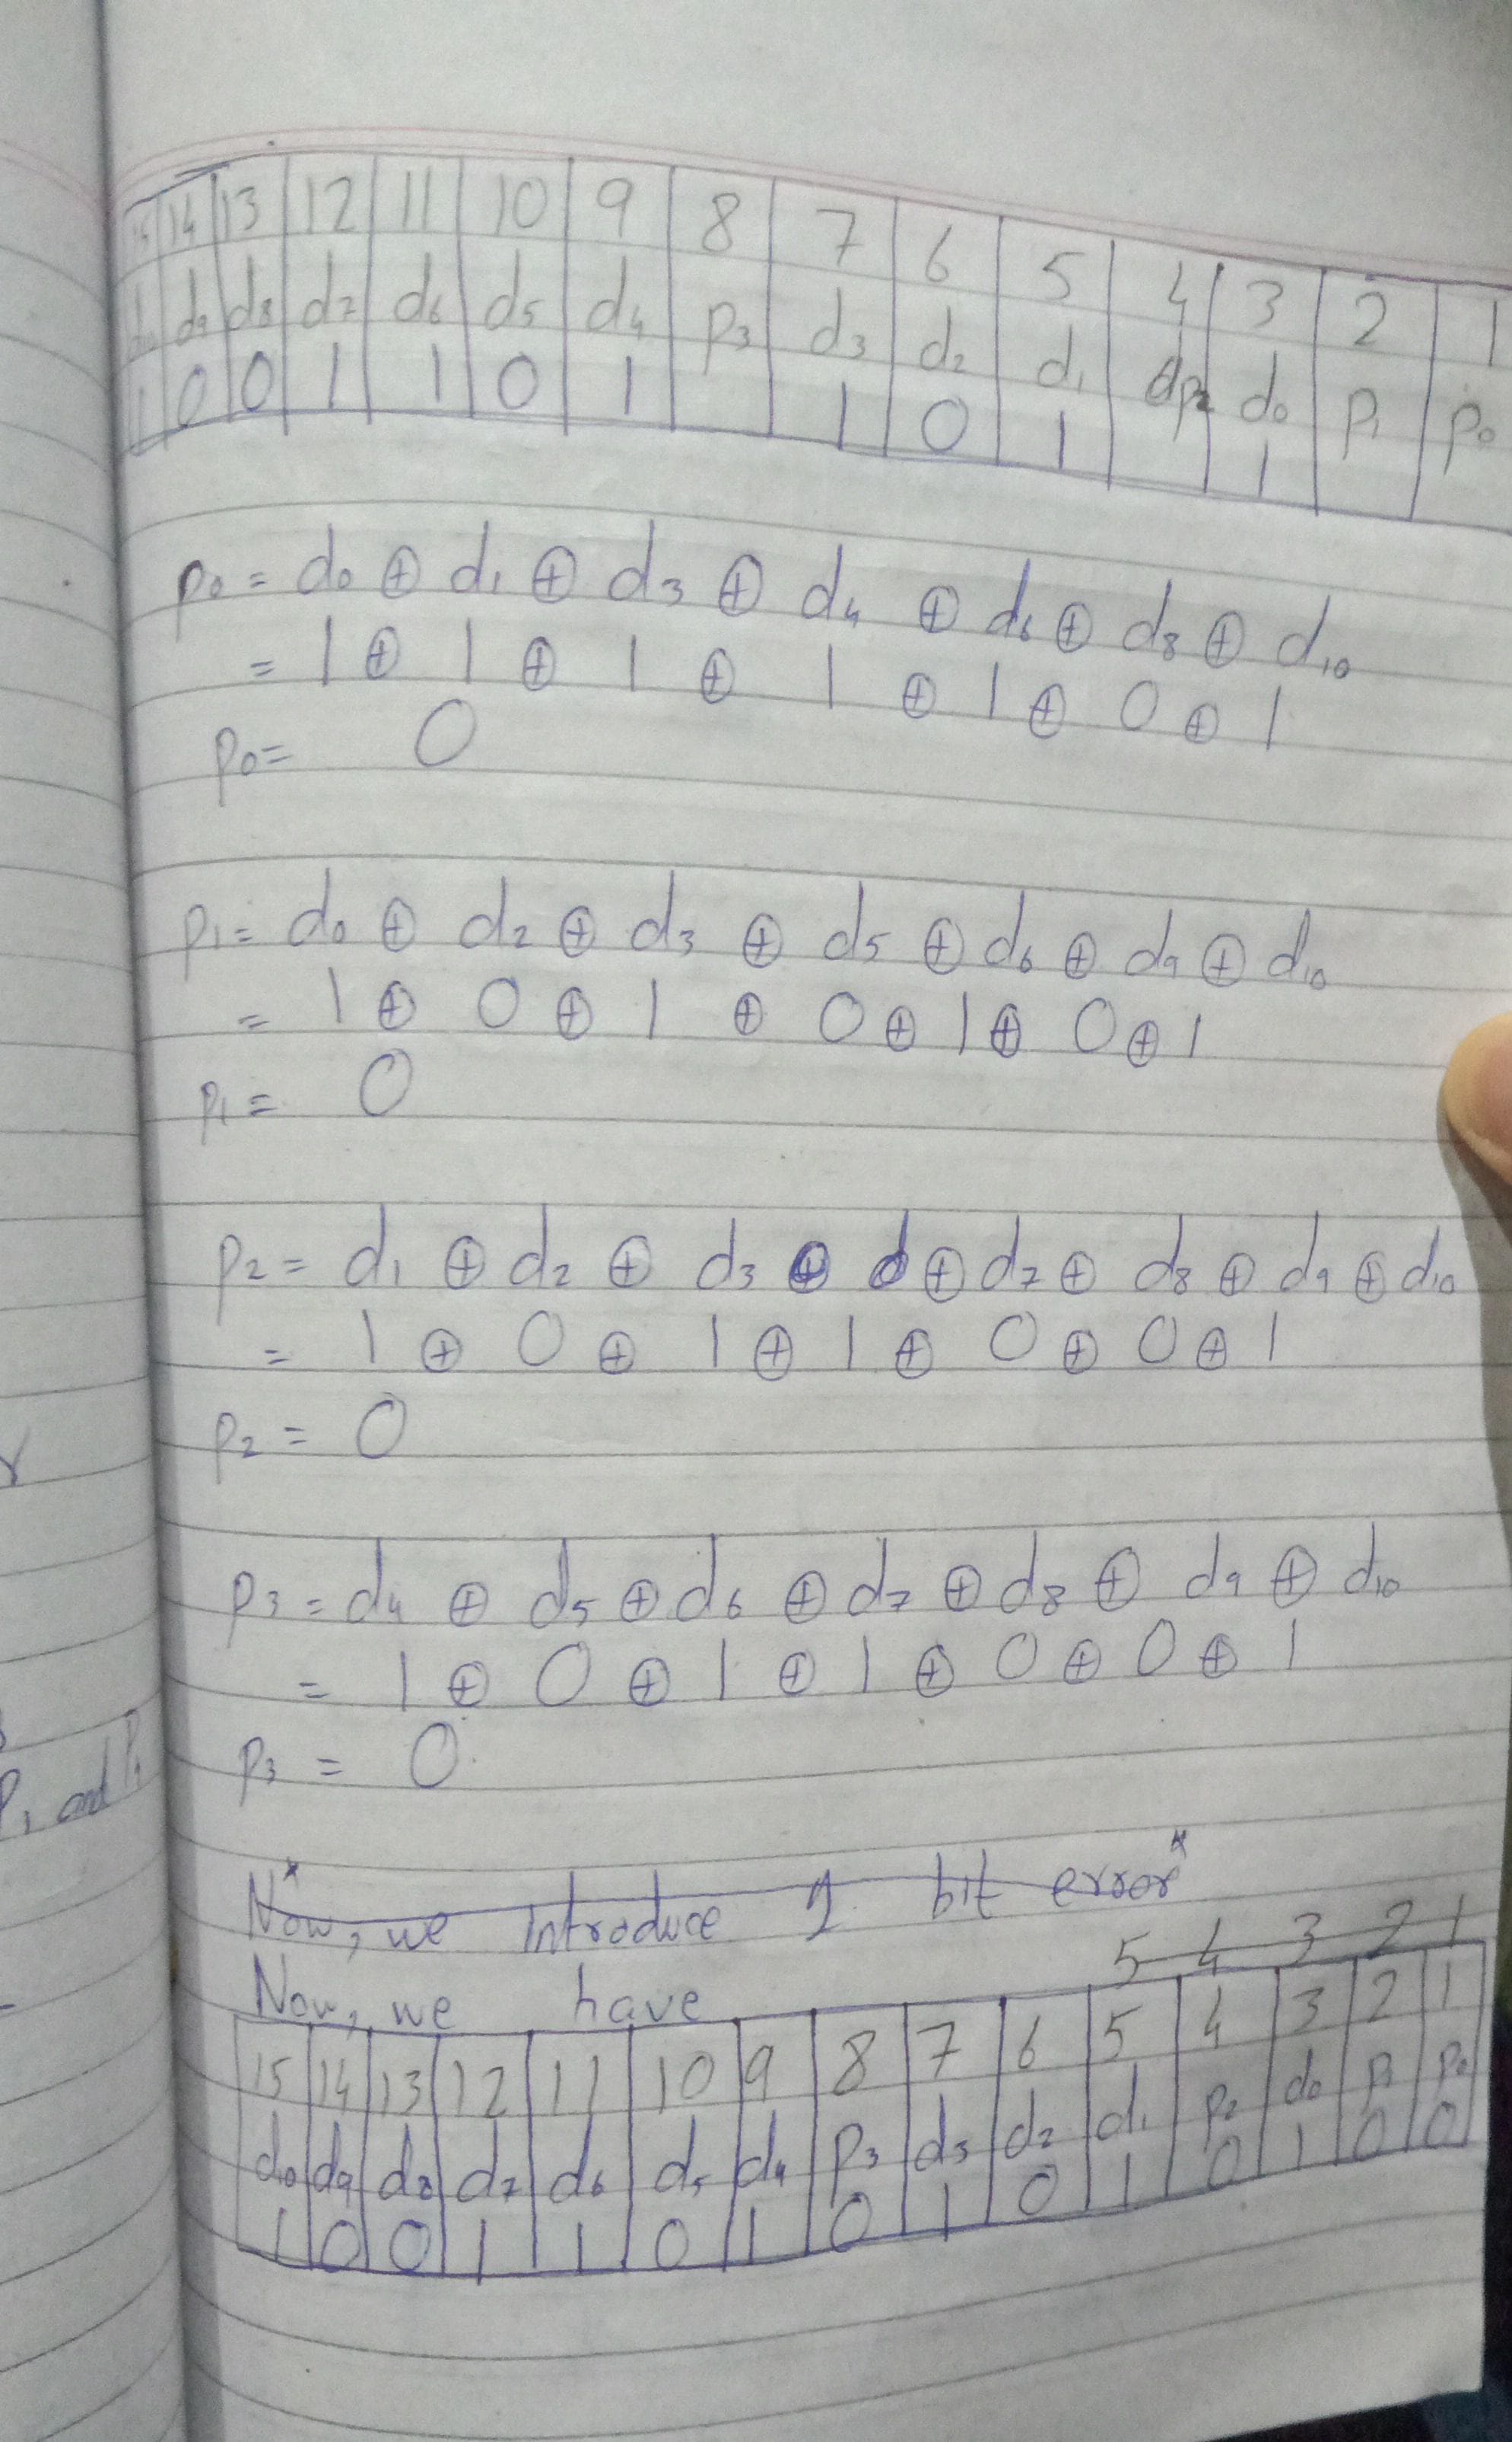 15 14 13 12 11 10 9 8 7 6 5 4 3 2 1
d10 d9 d8 d7 d6 d5 d4 p3 d3 d2 d1 dp2 d0 p1 p0
1 0 0 1 1 0 1 1 0 1 1
p0 = d0 ⊕ d1 ⊕ d3 ⊕ d4 ⊕ d6 ⊕ d8 ⊕ d10
= 1 ⊕ 1 ⊕ 1 ⊕ 1 ⊕ 1 ⊕ 0 ⊕ 1
p0 = 0
p1 = d0 ⊕ d2 ⊕ d3 ⊕ d5 ⊕ d6 ⊕ d9 ⊕ d10
= 1 ⊕ 0 ⊕ 1 ⊕ 0 ⊕ 1 ⊕ 0 ⊕ 1
p1 = 0
p2 = d1 ⊕ d2 ⊕ d3 ⊕ d ⊕ d7 ⊕ d8 ⊕ d9 ⊕ d10
= 1 ⊕ 0 ⊕ 1 ⊕ 1 ⊕ 0 ⊕ 0 ⊕ 1
p2 = 0
p3 = d4 ⊕ d5 ⊕ d6 ⊕ d7 ⊕ d8 ⊕ d9 ⊕ d10
= 1 ⊕ 0 ⊕ 1 ⊕ 1 ⊕ 0 ⊕ 0 ⊕ 1
p3 = 0
P1 and P
Now, we introduce 1 bit error
5 4 3 2 1
Now, we have
15 14 13 12 11 10 9 8 7 6 5 4 3 2 1
d10 d9 d8 d7 d6 d5 d4 p3 d3 d2 d1 p2 d0 p1 p0
1 0 0 1 1 0 1 0 1 0 1 0 1 0 0